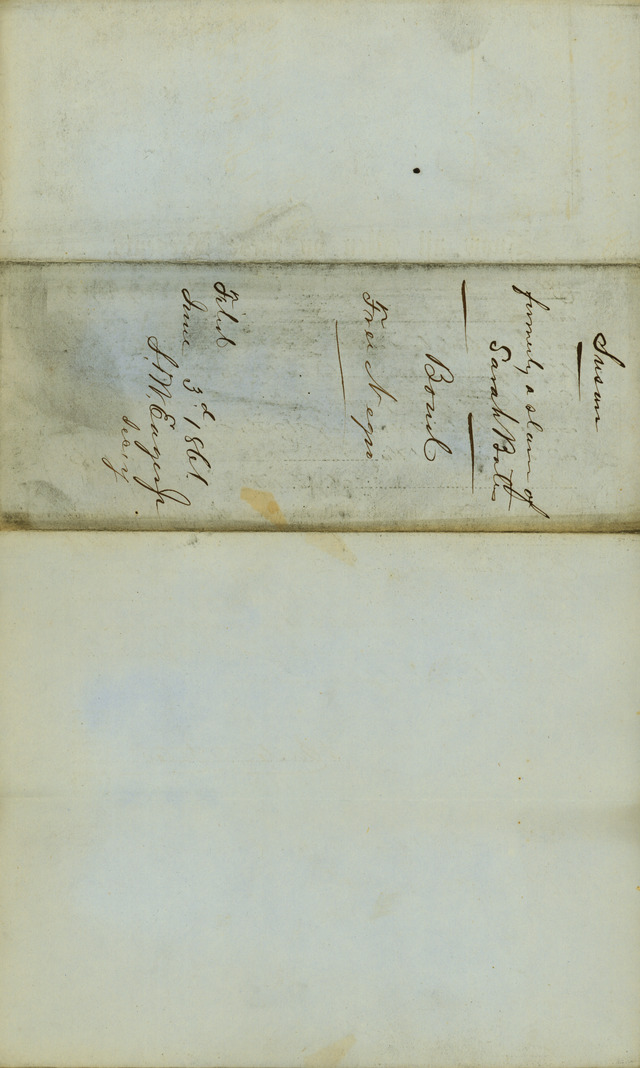 Susan
formerly a slave of
Sarah Bates
Bond
Free Negro
Filed
June 3d 1861.
S. W. Eager Jr